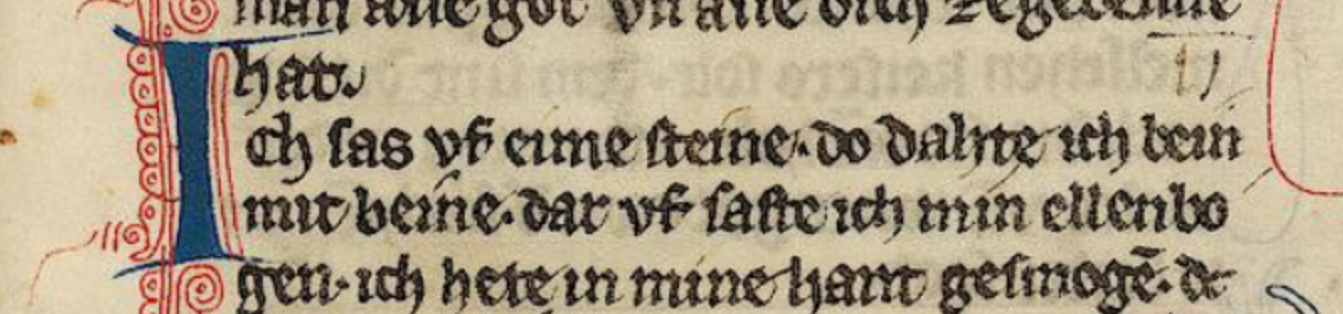 man alle got vn̄ alle dich zegebenne
hat.
Ich ſas vf eime ſteine. do dahte ich bein
mit beine. dar vf ſaſte ich min ellenbo
gen. ich hete in mine hant geſmogē. dc